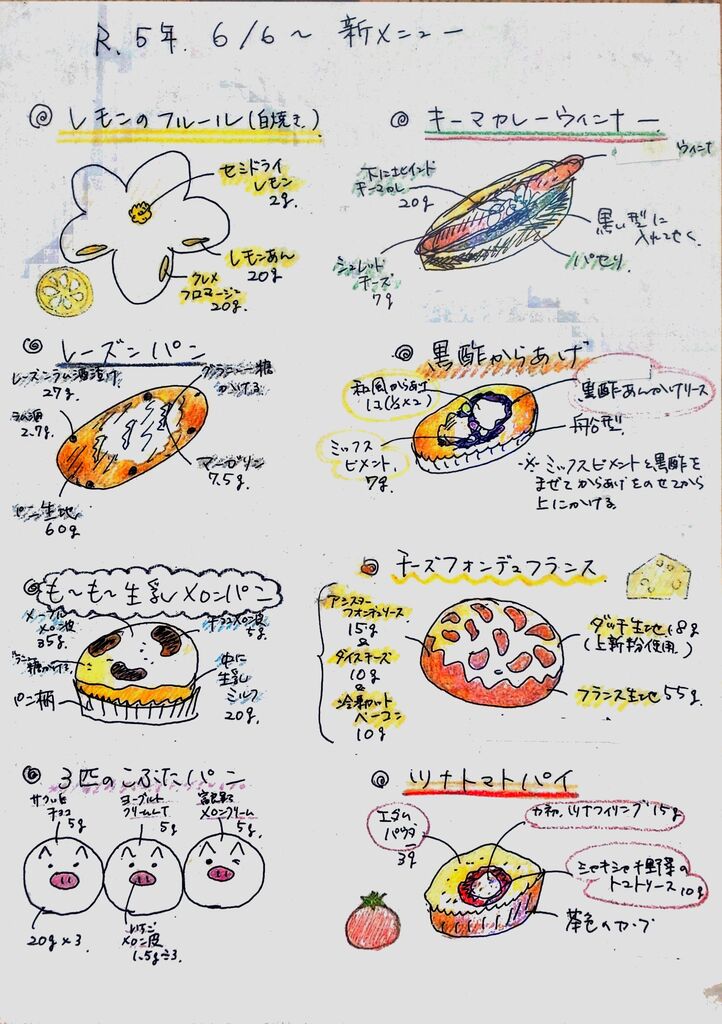 R.5年. 6/6～ 新メニュー
◎ レモンのフルール(白焼き.)
セミドライ
レモン
2g.
レモンあん
20g.
クレメ
フロマージュ
20g.
◎ キーマカレーウィンナー
ウィンナ
20g.
黒い型に
入れてやく
パセリ
シュレット
チーズ
7g
◎ レーズンパン
レーズンラム酒漬け
27g.
ラム酒
2.7g.
グラニュー糖
かける
マーガリン
7.5g.
パン生地
60g
◎ 黒酢からあげ
和風からあげ
1コ(½×2)
黒酢あんかけソース
舟台型.
ミックス
ピメント.
7g.
※ ミックスピメントと黒酢を
まぜてからあげをのせてから
上にかける.
◎ も～も～生乳メロンパン
メープル
メロン皮
35g.
チョコメロン皮
5g.
グラニュー
糖かける
中に
生乳
ミルク
20g.
◎ チーズフォンデュフランス
フォンデュソース
15g
&
ダイスチーズ
10g
&
冷凍カット
ベーコン
10g
ダッチ生地 18g
(上新粉使用)
フランス生地 55g.
◎ 3匹のこぶたパン
チョコ
5g
ヨーグルト
クリーム
5g
富良野
メロンクリーム
5g.
20g×3.
いちご
メロン皮
1.5g÷3.
◎ ツナトマトパイ
エダム
パウダー
3g
ツナフィリング 15g
シャキシャキ野菜の
トマトソース 10g
茶色のカップ